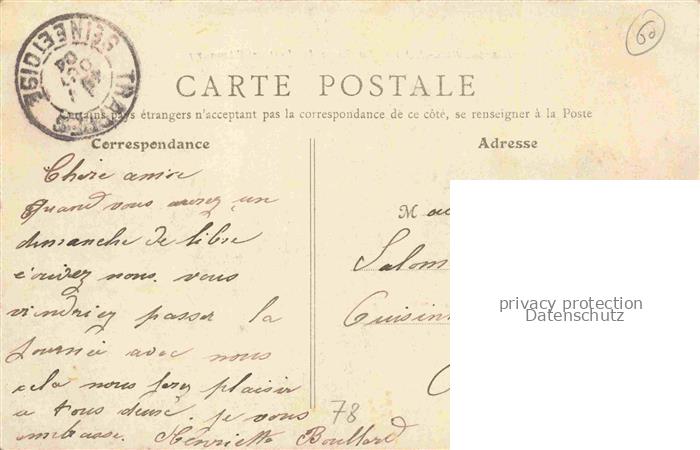 60
SEINE-ET-OISE
TRAPPES
CARTE POSTALE
Certains pays étrangers n'acceptant pas la correspondance de ce côté, se renseigner à la Poste
Correspondance
Adresse
Chère amie
Quand vous aurez un
dimanche de libre
écrivez nous. vous
viendriez passer la
journée avec nous
cela nous fera plaisir
a tous deux. je vous
embrasse. Henriette Boullard
M
Salom
Cuisin
78
privacy protection
Datenschutz